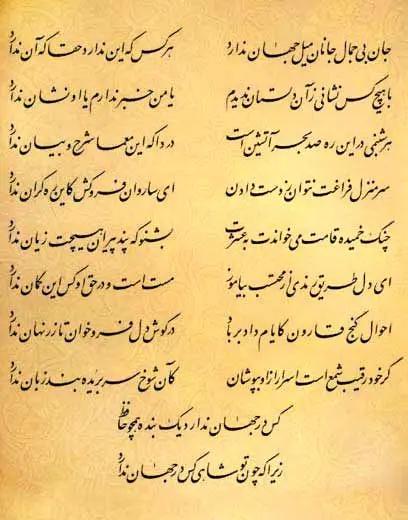 جان بی جمال جانان میل جهان ندارد هر کس که این ندارد حقا که آن ندارد
با هیچ کس نشانی زآن دلستان ندیدم یا من خبر ندارم یا او نشان ندارد
هر شبنمی در این ره صد بحر آتشین است دردا که این معما شرح و بیان ندارد
سر منزل فراغت نتوان ز دست دادن ای ساروان فروکش کاین ره کران ندارد
چنگ خمیده قامت می خواندت به عشرت بشنو که پند پیران هیچت زیان ندارد
ای دل طریق رندی از محتسب بیاموز مست است و در حق او کس این گمان ندارد
احوال گنج قارون کایام داد بر باد در گوش دل فرو خوان تا زر نهان ندارد
گر خود رقیب شمع است اسرار از او بپوشان کآن شوخ سر بریده بند زبان ندارد
کس در جهان ندارد یک بنده همچو حافظ
زیرا که چون تو شاهی کس در جهان ندارد